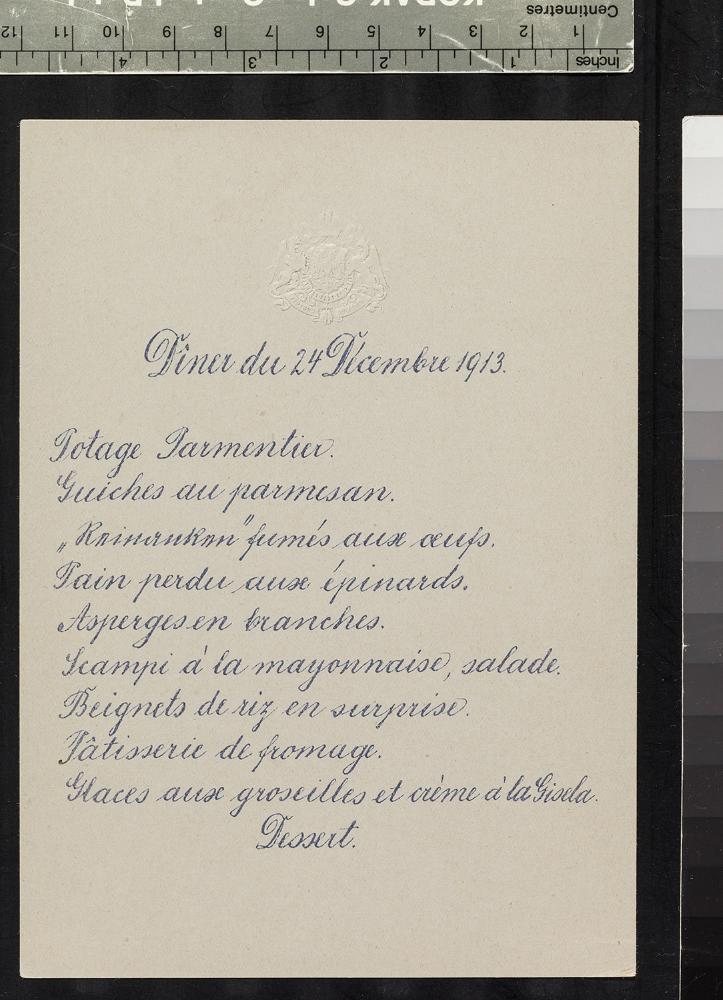 KODAK
Centimetres
12 11 10 9 8 7 6 5 4 3 2 1
4 3 2 1 Inches
Dîner du 24 Décembre 1913.
Potage Parmentier.
Guiches au parmesan.
„Reinanken" fumés aux œufs.
Pain perdu aux épinards.
Asperges en branches.
Scampi à la mayonnaise, salade.
Beignets de riz en surprise.
Pâtisserie de fromage.
Glaces aux groseilles et crème à la Gisela.
Dessert.